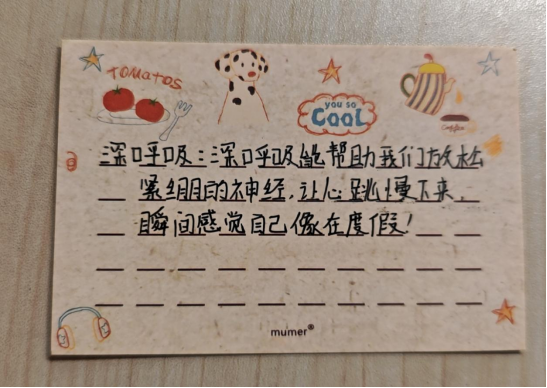 TOMATOS
you so
Cool
Coffee
深呼吸:深呼吸能帮助我们放松
紧绷的神经,让心跳慢下来,
瞬间感觉自己像在度假!
mumer®